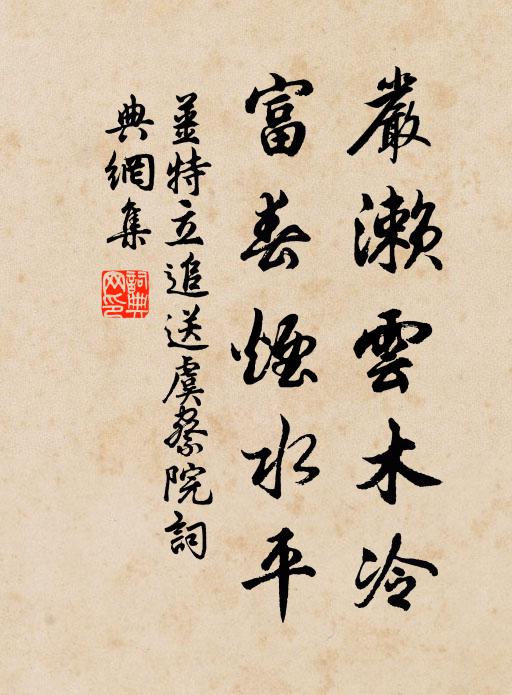 嚴瀨雲木冷
富春煙水平
薑特立追送虞察院詞
典網集
詞典網印